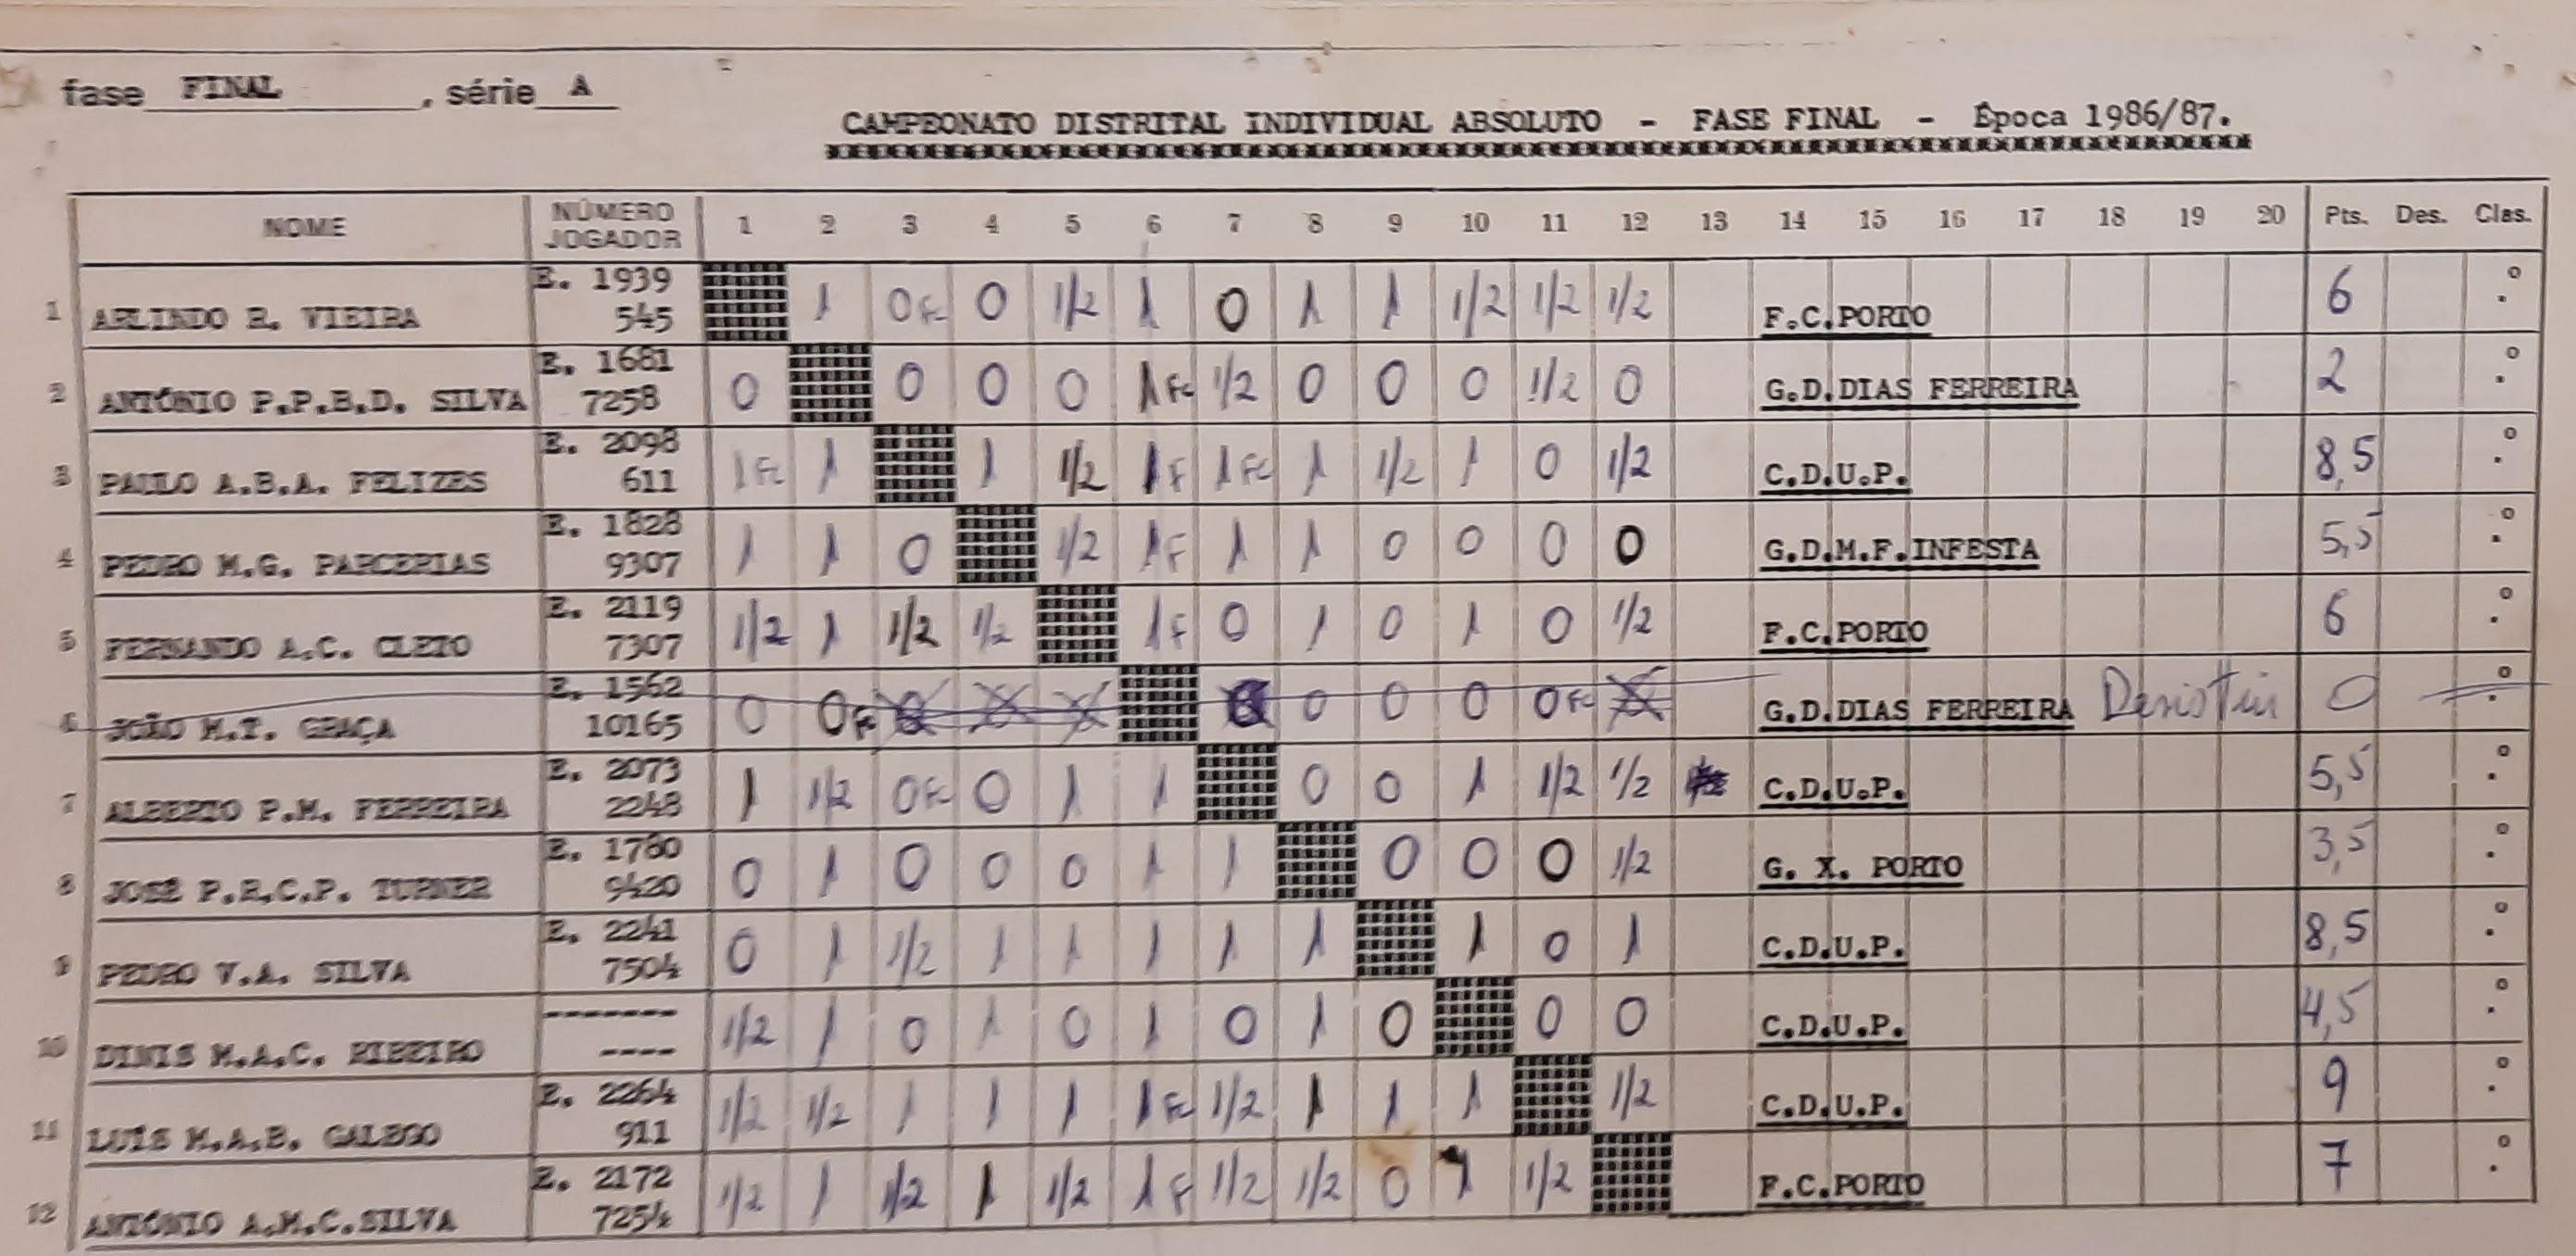 fase FINAL , série A
CAMPEONATO DISTRITAL INDIVIDUAL ABSOLUTO - FASE FINAL - Época 1986/87.
NOME NÚMERO JOGADOR 1 2 3 4 5 6 7 8 9 10 11 12 13 14 15 16 17 18 19 20 Pts. Des. Clas.
1 ARLINDO R. VIEIRA E. 1939 545 1 0 Fc 0 1/2 1 0 1 1 1/2 1/2 1/2 F.C.PORTO 6 º.
2 ANTÓNIO P.P.B.D. SILVA E. 1681 7258 0 0 0 0 1 Fc 1/2 0 0 0 1/2 0 G.D.DIAS FERREIRA 2 º.
3 PAULO A.B.A. FELIZES E. 2098 611 1 Fc 1 1 1/2 1 F 1 Fc 1 1/2 1 0 1/2 C.D.U.P. 8,5 º.
4 PEDRO M.G. PARCERIAS E. 1828 9307 1 1 0 1/2 1 F 1 1 0 0 0 0 G.D.M.F.INFESTA 5,5 º.
5 FERNANDO A.C. CLETO E. 2119 7307 1/2 1 1/2 1/2 1 F 0 1 0 1 0 1/2 F.C.PORTO 6 º.
6 JOÃO M.T. GRAÇA E. 1562 10165 0 0 Fc 0 0 0 0 Fc G.D.DIAS FERREIRA Desistiu 0 º.
7 ALBERTO P.M. FERREIRA E. 2073 2248 1 1/2 0 Fc 0 1 1 0 0 1 1/2 1/2 C.D.U.P. 5,5 º.
8 JOSÉ P.R.C.P. TURNER E. 1780 9420 0 1 0 0 0 1 1 0 0 0 1/2 G. X. PORTO 3,5 º.
9 PEDRO V.A. SILVA E. 2241 7504 0 1 1/2 1 1 1 1 1 1 0 1 C.D.U.P. 8,5 º.
10 DINIS M.A.C. RIBEIRO ------- ---- 1/2 1 0 1 0 1 0 1 0 0 0 C.D.U.P. 4,5 º.
11 LUÍS M.A.B. GALEGO E. 2264 911 1/2 1/2 1 1 1 1 Fc 1/2 1 1 1 1/2 C.D.U.P. 9 º.
12 ANTÓNIO A.M.C.SILVA E. 2172 7254 1/2 1 1/2 1 1/2 1 F 1/2 1/2 0 1 1/2 F.C.PORTO 7 º.